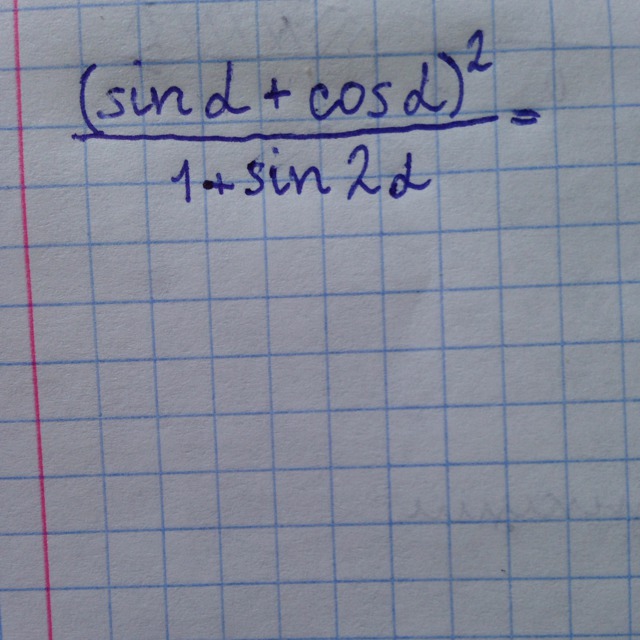 (sin α + cos α)²
——————————— =
1 + sin 2α